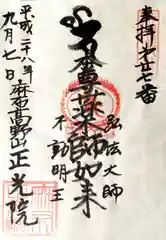 奉拝 第廿七番
弘法大師
本尊薬師如来
不動明王
平成二十八年
九月七日
高野山
正光院